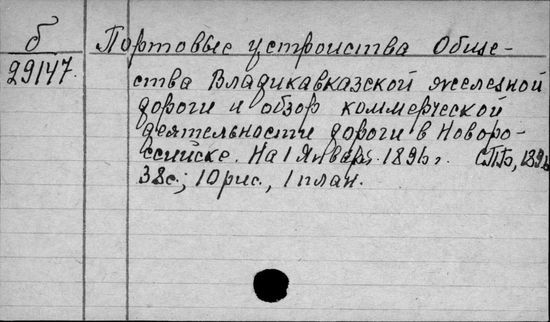 б
29147.
Портовые устройства Обще-
ства Владикавказской железной
дороги и обзор коммерческой
деятельности дороги в Новоро-
ссийске. На 1 Января 1896 г. СПБ, 1896
38с.; 10 рис., 1 план.